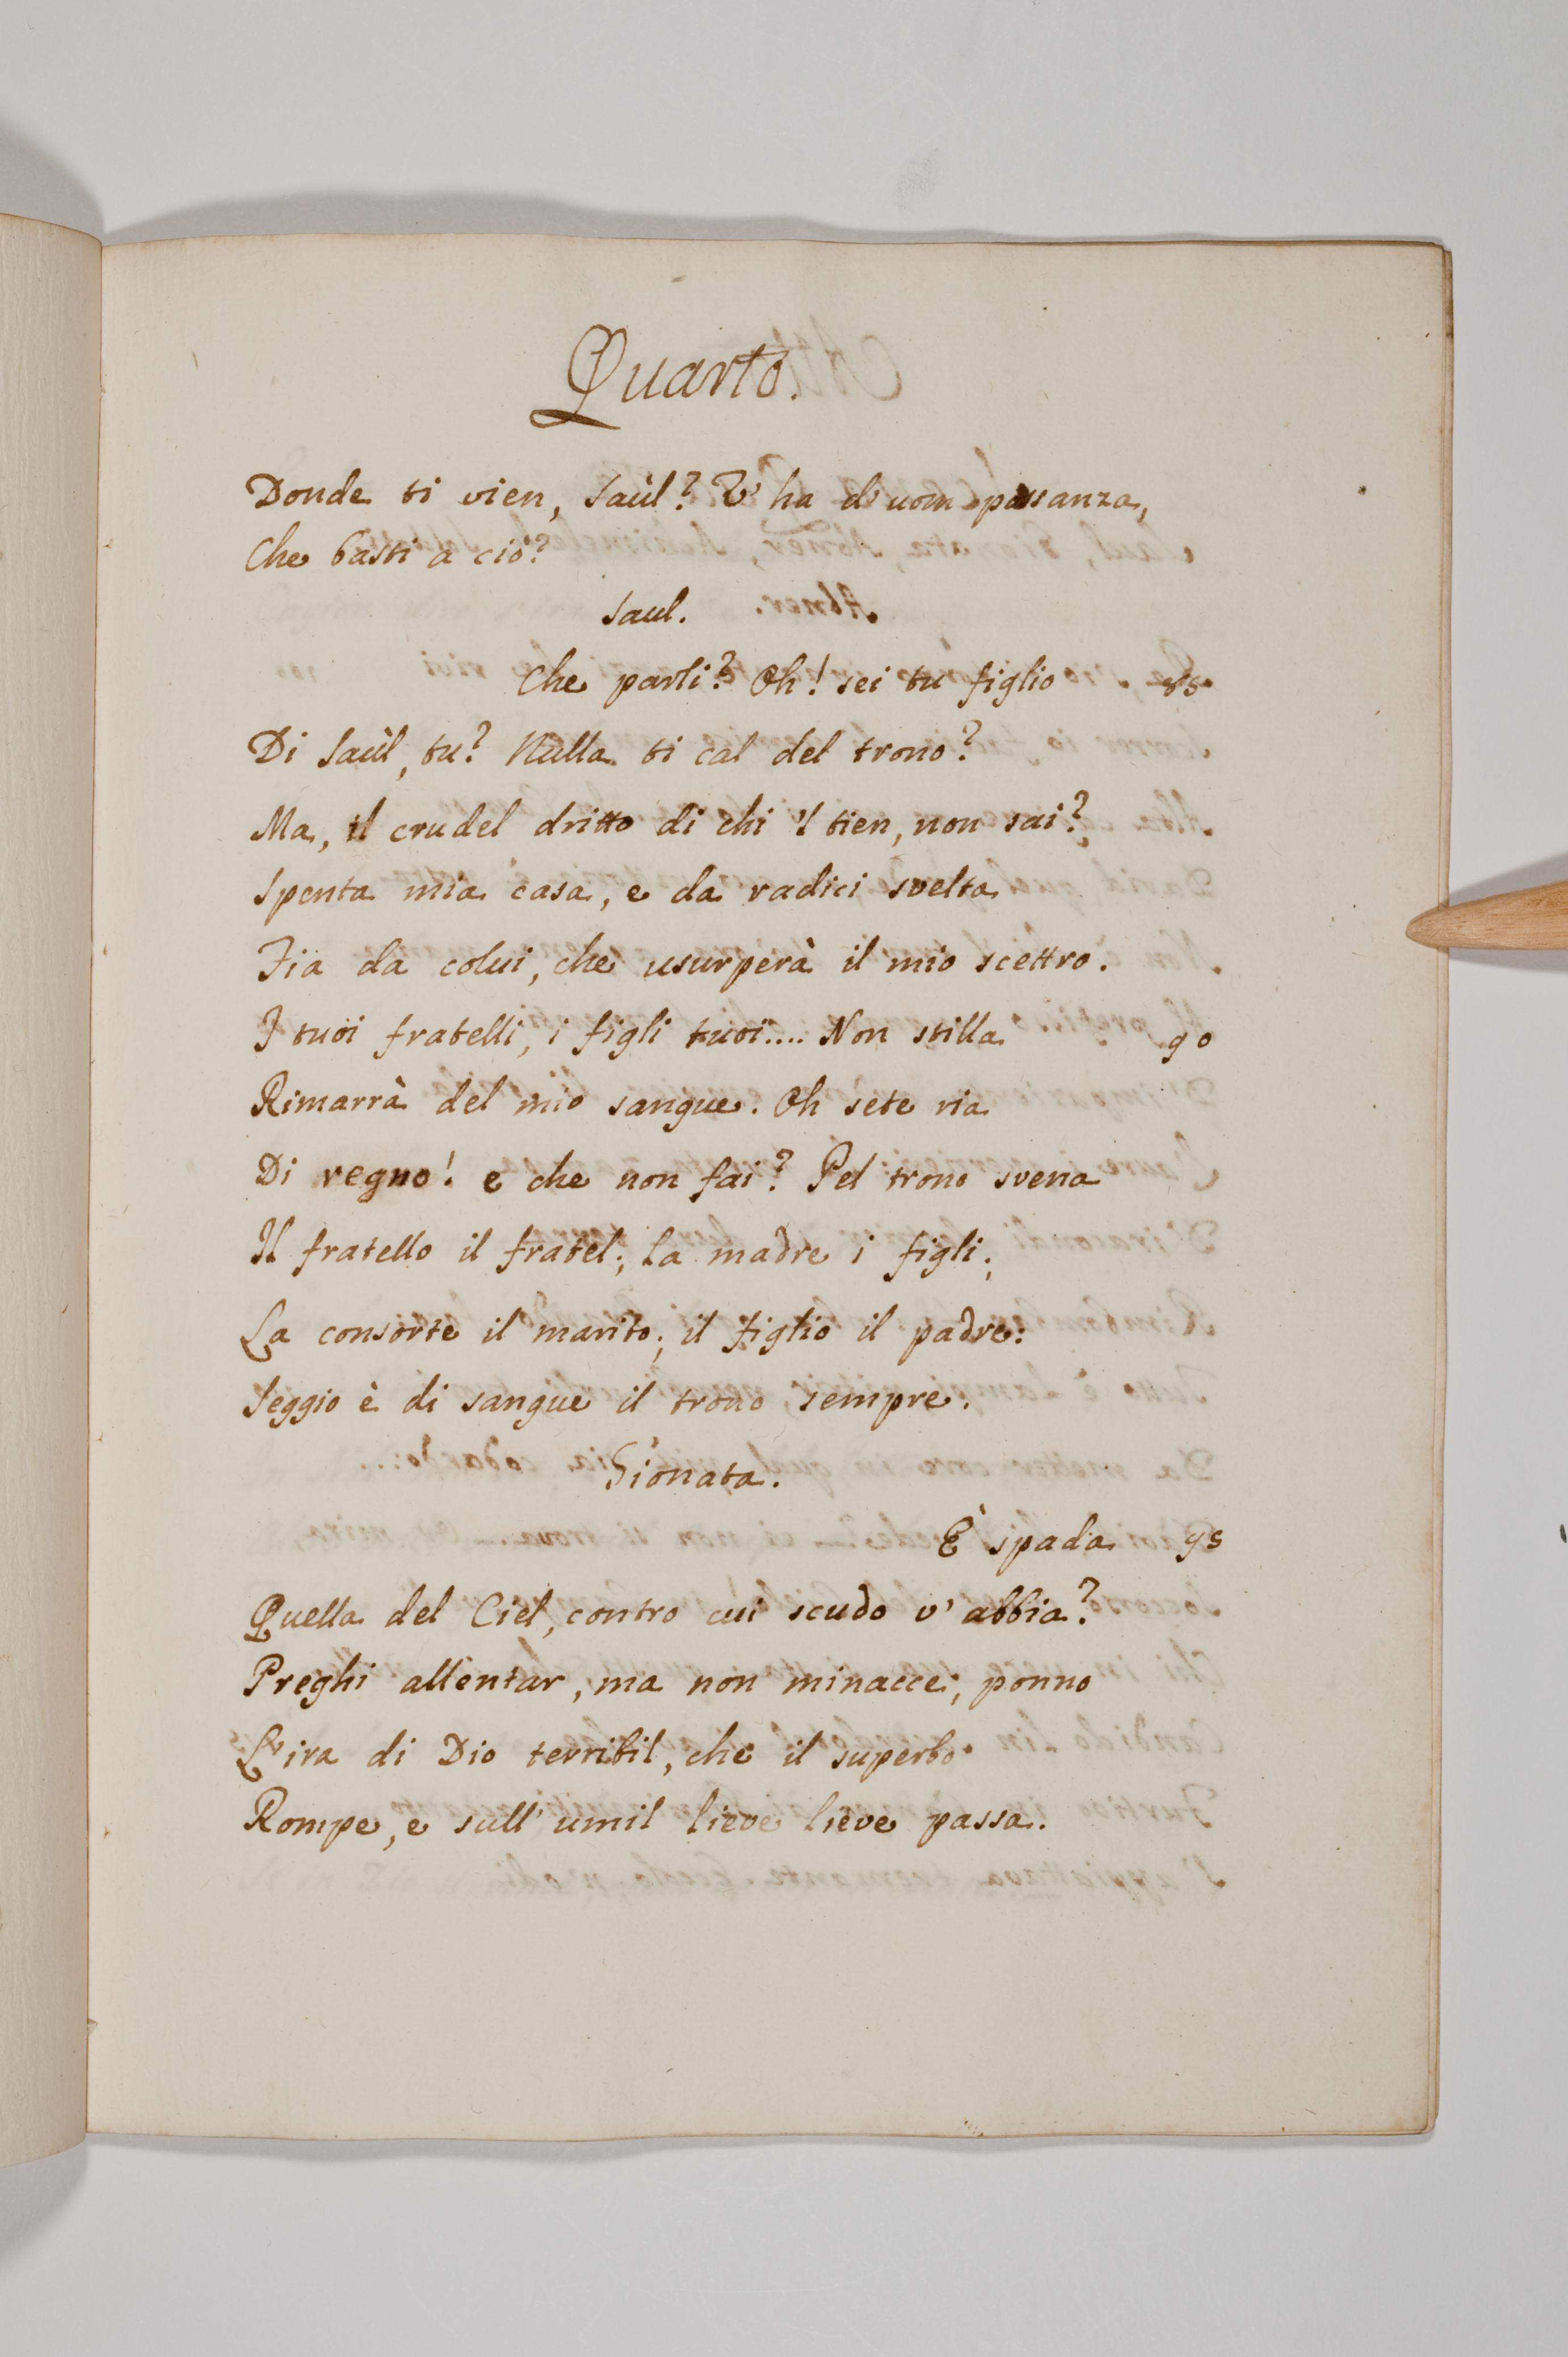 Quarto.
Donde ti vien, Saùl? V' ha d'uom possanza,
Che basti a ciò?
Saul.
Che parli? Oh! sei tu figlio 85
Di Saùl, tu? Nulla ti cal del trono?
Ma, il crudel dritto di chi 'l tien, non sai?
Spenta mia casa, e da radici svelta
Fia da colui, che usurperà il mio scettro.
I tuoi fratelli, i figli tuoi.... Non stilla 90
Rimarrà del mio sangue. Oh sete ria
Di regno! e che non fai? Pel trono svena
Il fratello il fratel; la madre i figli;
La consorte il marito; il figlio il padre:
Seggio è di sangue il trono sempre.
Gionata.
È spada 95
Quella del Ciel, contro cui scudo v' abbia?
Preghi allentar, ma non minacce, ponno
L'ira di Dio terribil, che il superbo
Rompe, e sull' umil lieve lieve passa.